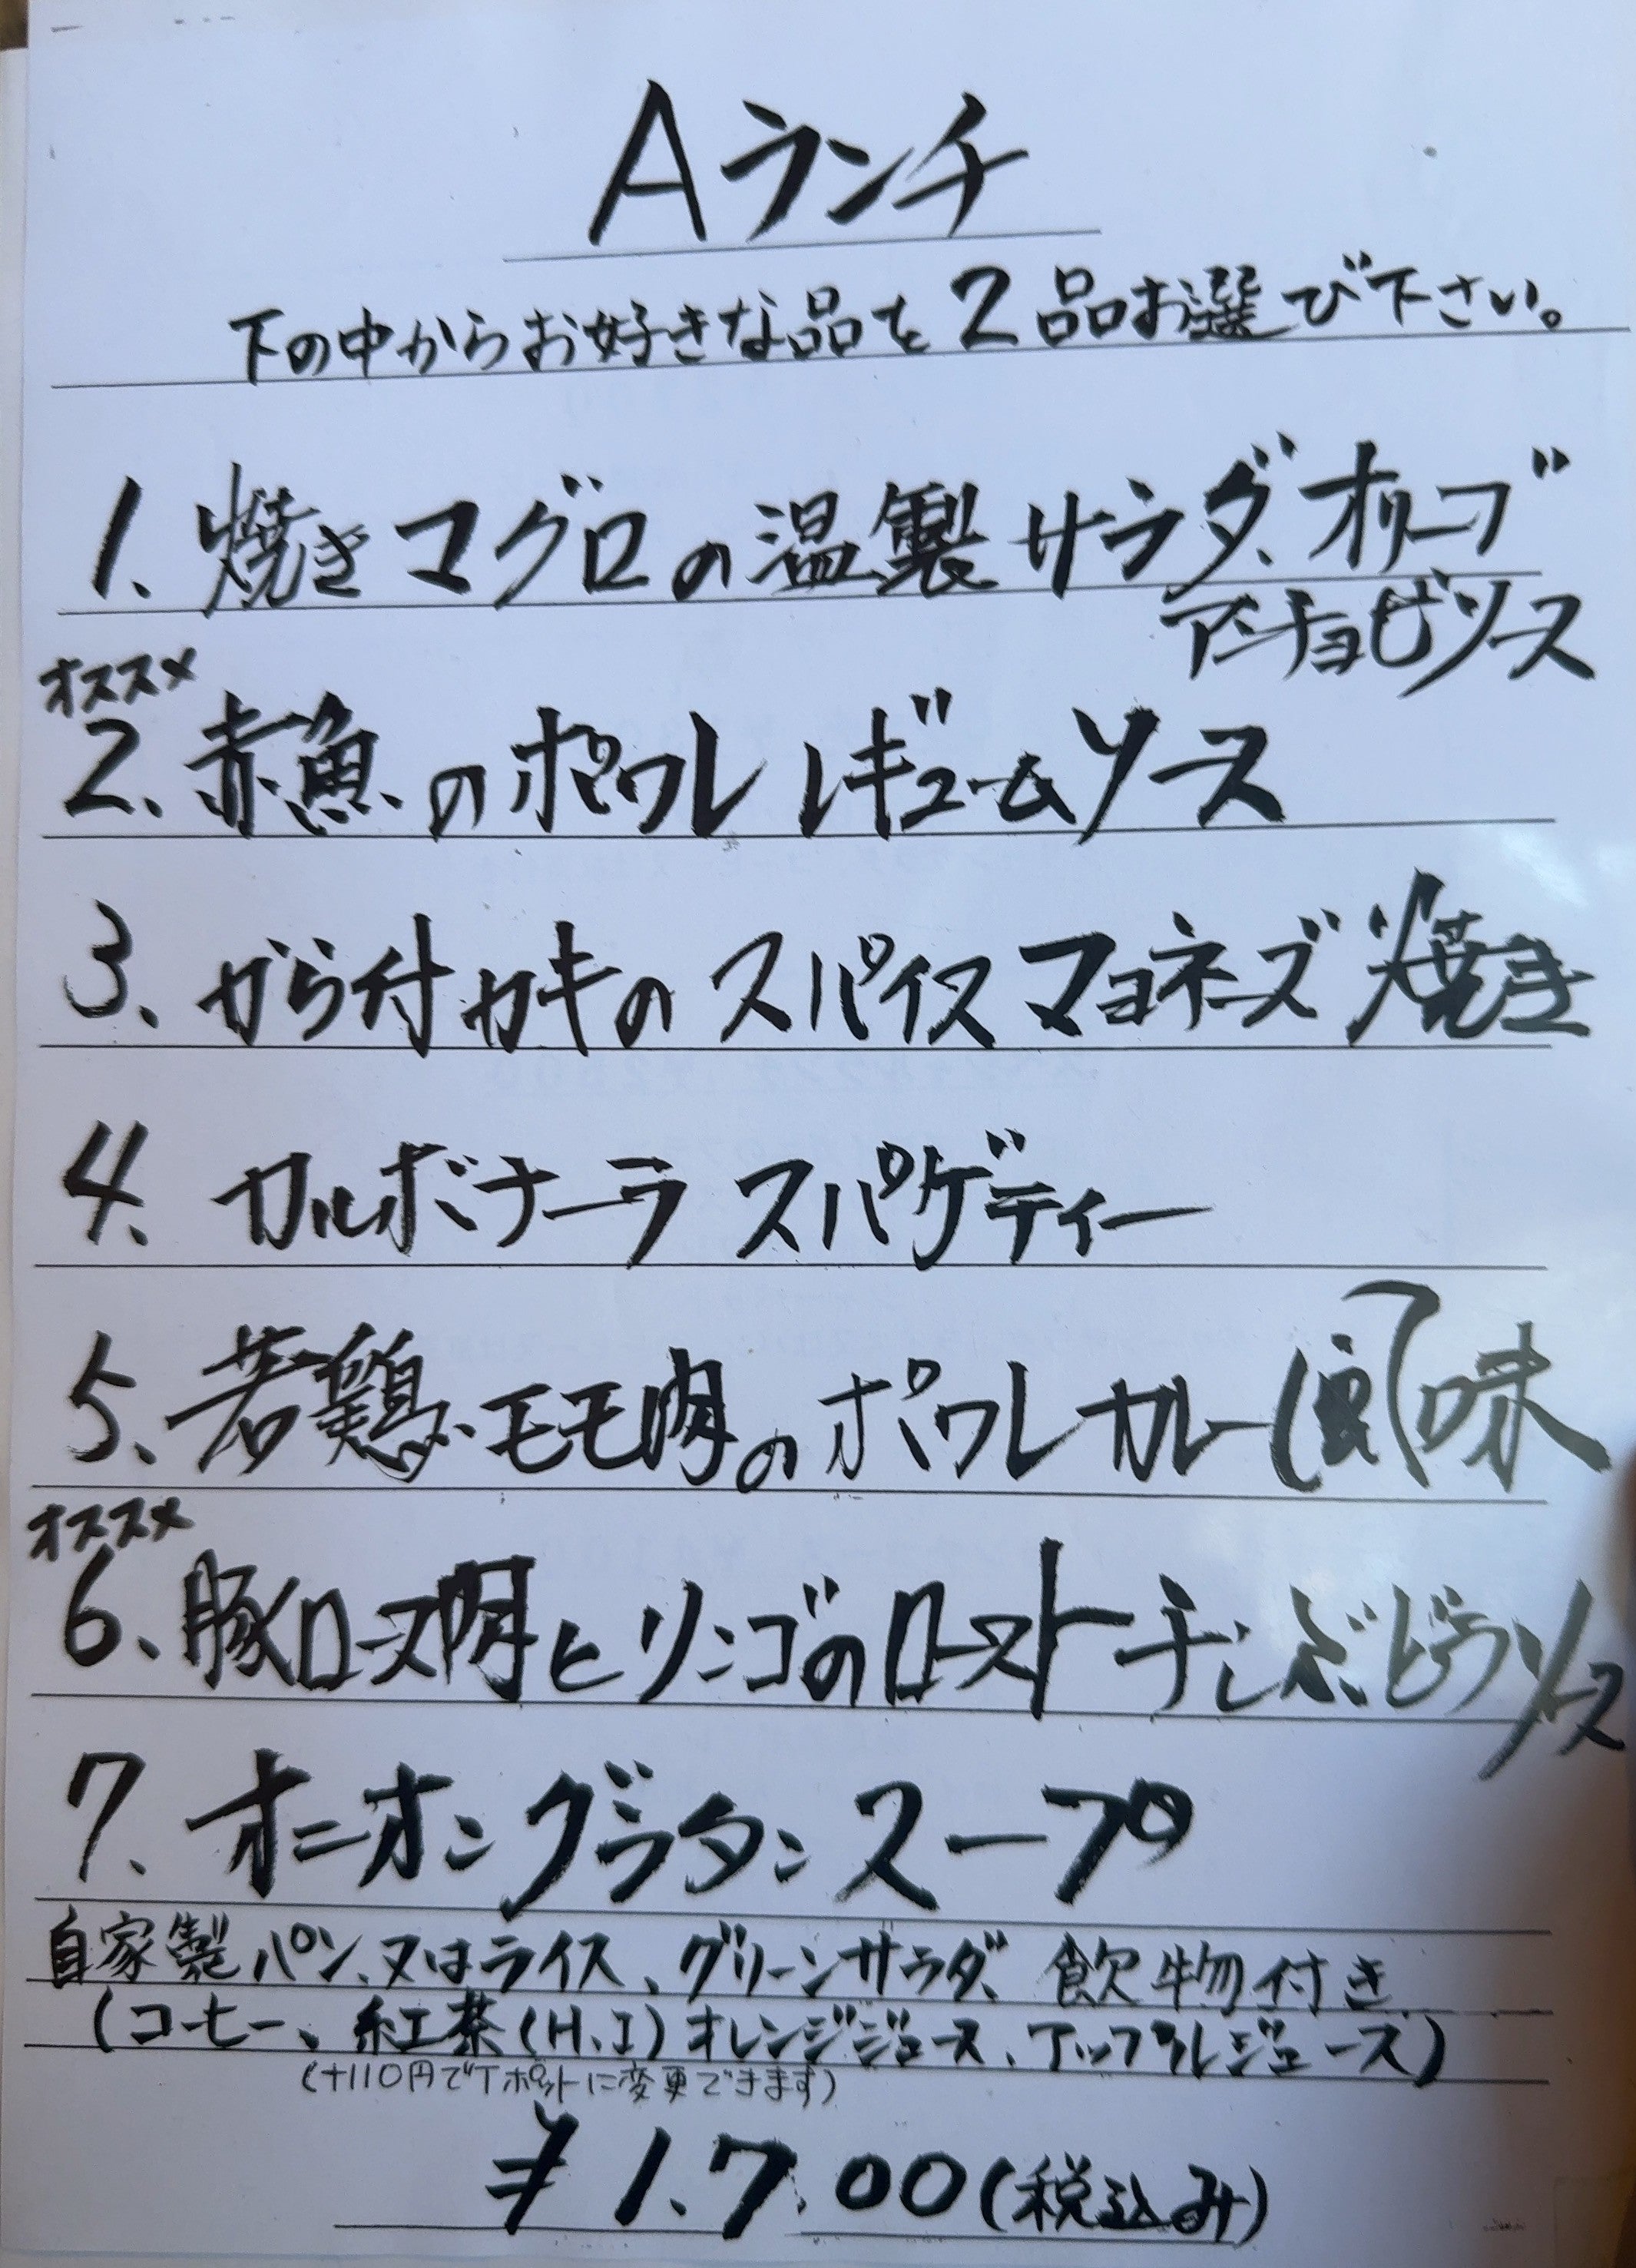 Aランチ
下の中からお好きな品を2品お選び下さい。
1、焼きマグロの温製サラダ、オリーブ
アンチョビソース
オススメ
2、赤魚のポワレ レギュームソース
3、から付カキのスパイスマヨネーズ焼き
4、カルボナーラ スパゲティー
5、若鶏モモ肉のポワレ カレー風味
オススメ
6、豚ロース肉とリンゴのロースト ソース
7、オニオングラタンスープ
自家製パン、又はライス、グリーンサラダ、飲物付き
(コーヒー、紅茶(H、I)オレンジジュース、アップルジュース)
(+110円でTポットに変更できます)
¥1.700(税込み)